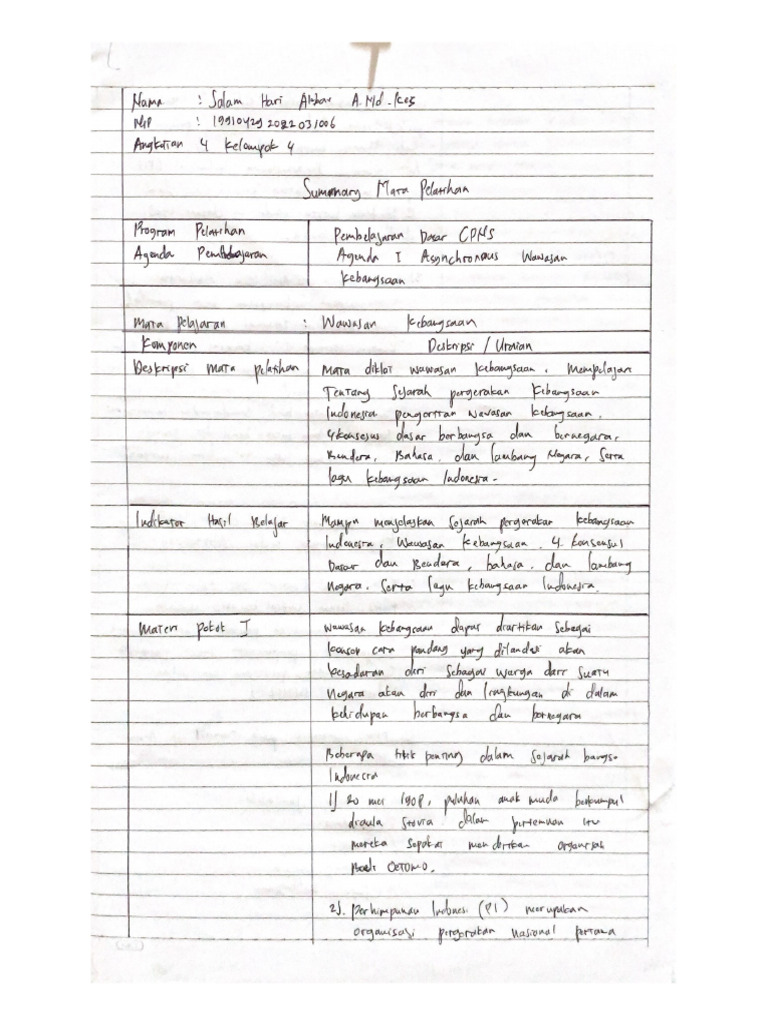 Nama : Salam Hari Akbar A.Md.Kes
NIP : 199104292022031006
Angkatan 4 Kelompok 4
Summary Mata Pelatihan
Program Pelatihan Pembelajaran Dasar CPNS
Agenda Pembelajaran Agenda I Asynchronous Wawasan
Kebangsaan
Mata Pelajaran : Wawasan Kebangsaan
Komponen Deskripsi / Uraian
Deskripsi Mata Pelatihan Mata diklat wawasan kebangsaan. Mempelajari
Tentang Sejarah pergerakan Kebangsaan
Indonesia pengertian wawasan kebangsaan,
4 Konsesus dasar berbangsa dan bernegara,
Bendera, Bahasa, dan lambang Negara, Serta
lagu kebangsaan Indonesia.
Indikator Hasil Belajar Mampu menjelaskan Sejarah pergerakan kebangsaan
Indonesia, Wawasan Kebangsaan, 4 Konsensus
Dasar dan Bendera, bahasa, dan lambang
Negara. Serta lagu kebangsaan Indonesia.
Materi Pokok I Wawasan Kebangsaan dapat diartikan Sebagai
konsep cara pandang yang dilandasi akan
kesadaran diri Sebagai warga dari Suatu
Negara akan diri dan lingkungan di dalam
kehidupan berbangsa dan bernegara
Beberapa titik penting dalam Sejarah bangsa
Indonesia
1) 20 mei 1908, puluhan anak muda berkumpul
diaula Stovia dalam pertemuan itu
mereka Sepakat mendirikan organisasi
Boedi OETOMO.
2). Perhimpunan Indonesi (PI) merupakan
organisasi pergerakan nasional pertama